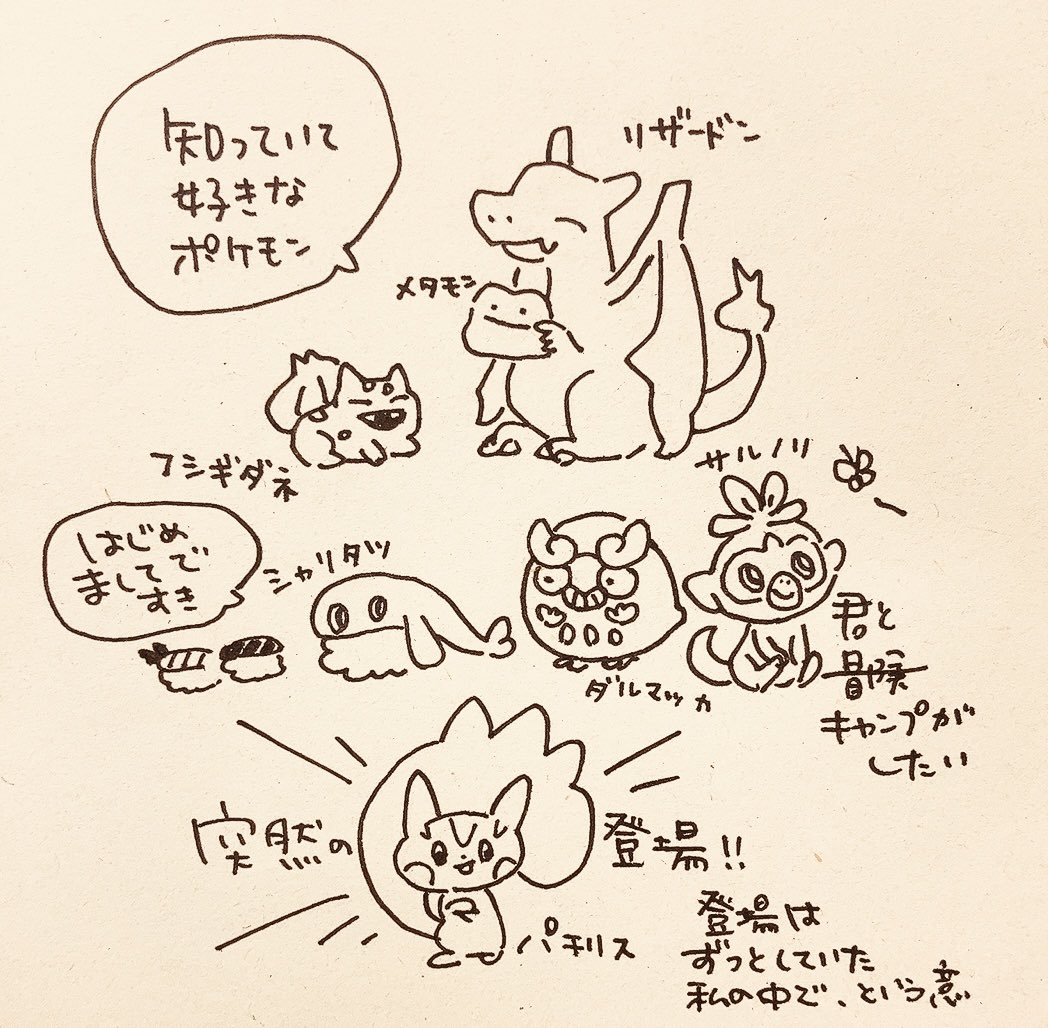 知っていて
好きな
ポケモン
リザードン
メタモン
フシギダネ
サルノリ
はじめ
ましてで
すき
シャリタツ
ダルマッカ
君と
冒険
キャンプが
したい
突然の
登場!!
パチリス
登場は
ずっとしていた
私の中で、という意